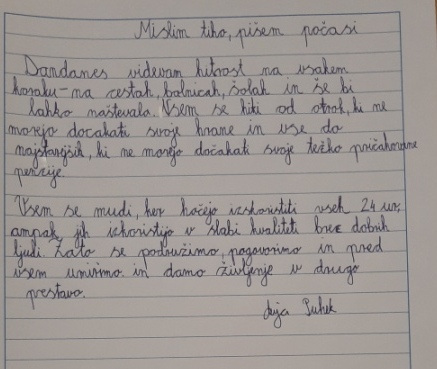 Mislim tiho, pišem počasi
Dandanes videvam hitrost na vsakem
koraku - na cestah, bolnicah, šolah in še bi
lahko naštevala. Vsem se hiti od otrok, ki ne
morejo docakati svoje hrane in vse do
najstarejših, ki ne morejo dočakati svoje težko pričakovane
penzije.
Vsem se mudi, ker hočejo izkoristiti vseh 24 ur,
ampak jih izkoristijo v slabi kvaliteti brez dobrih
ljudi. Zato se podružimo, pogovorimo in pred
vsem umirimo in damo življenje v drugo
prestavo.